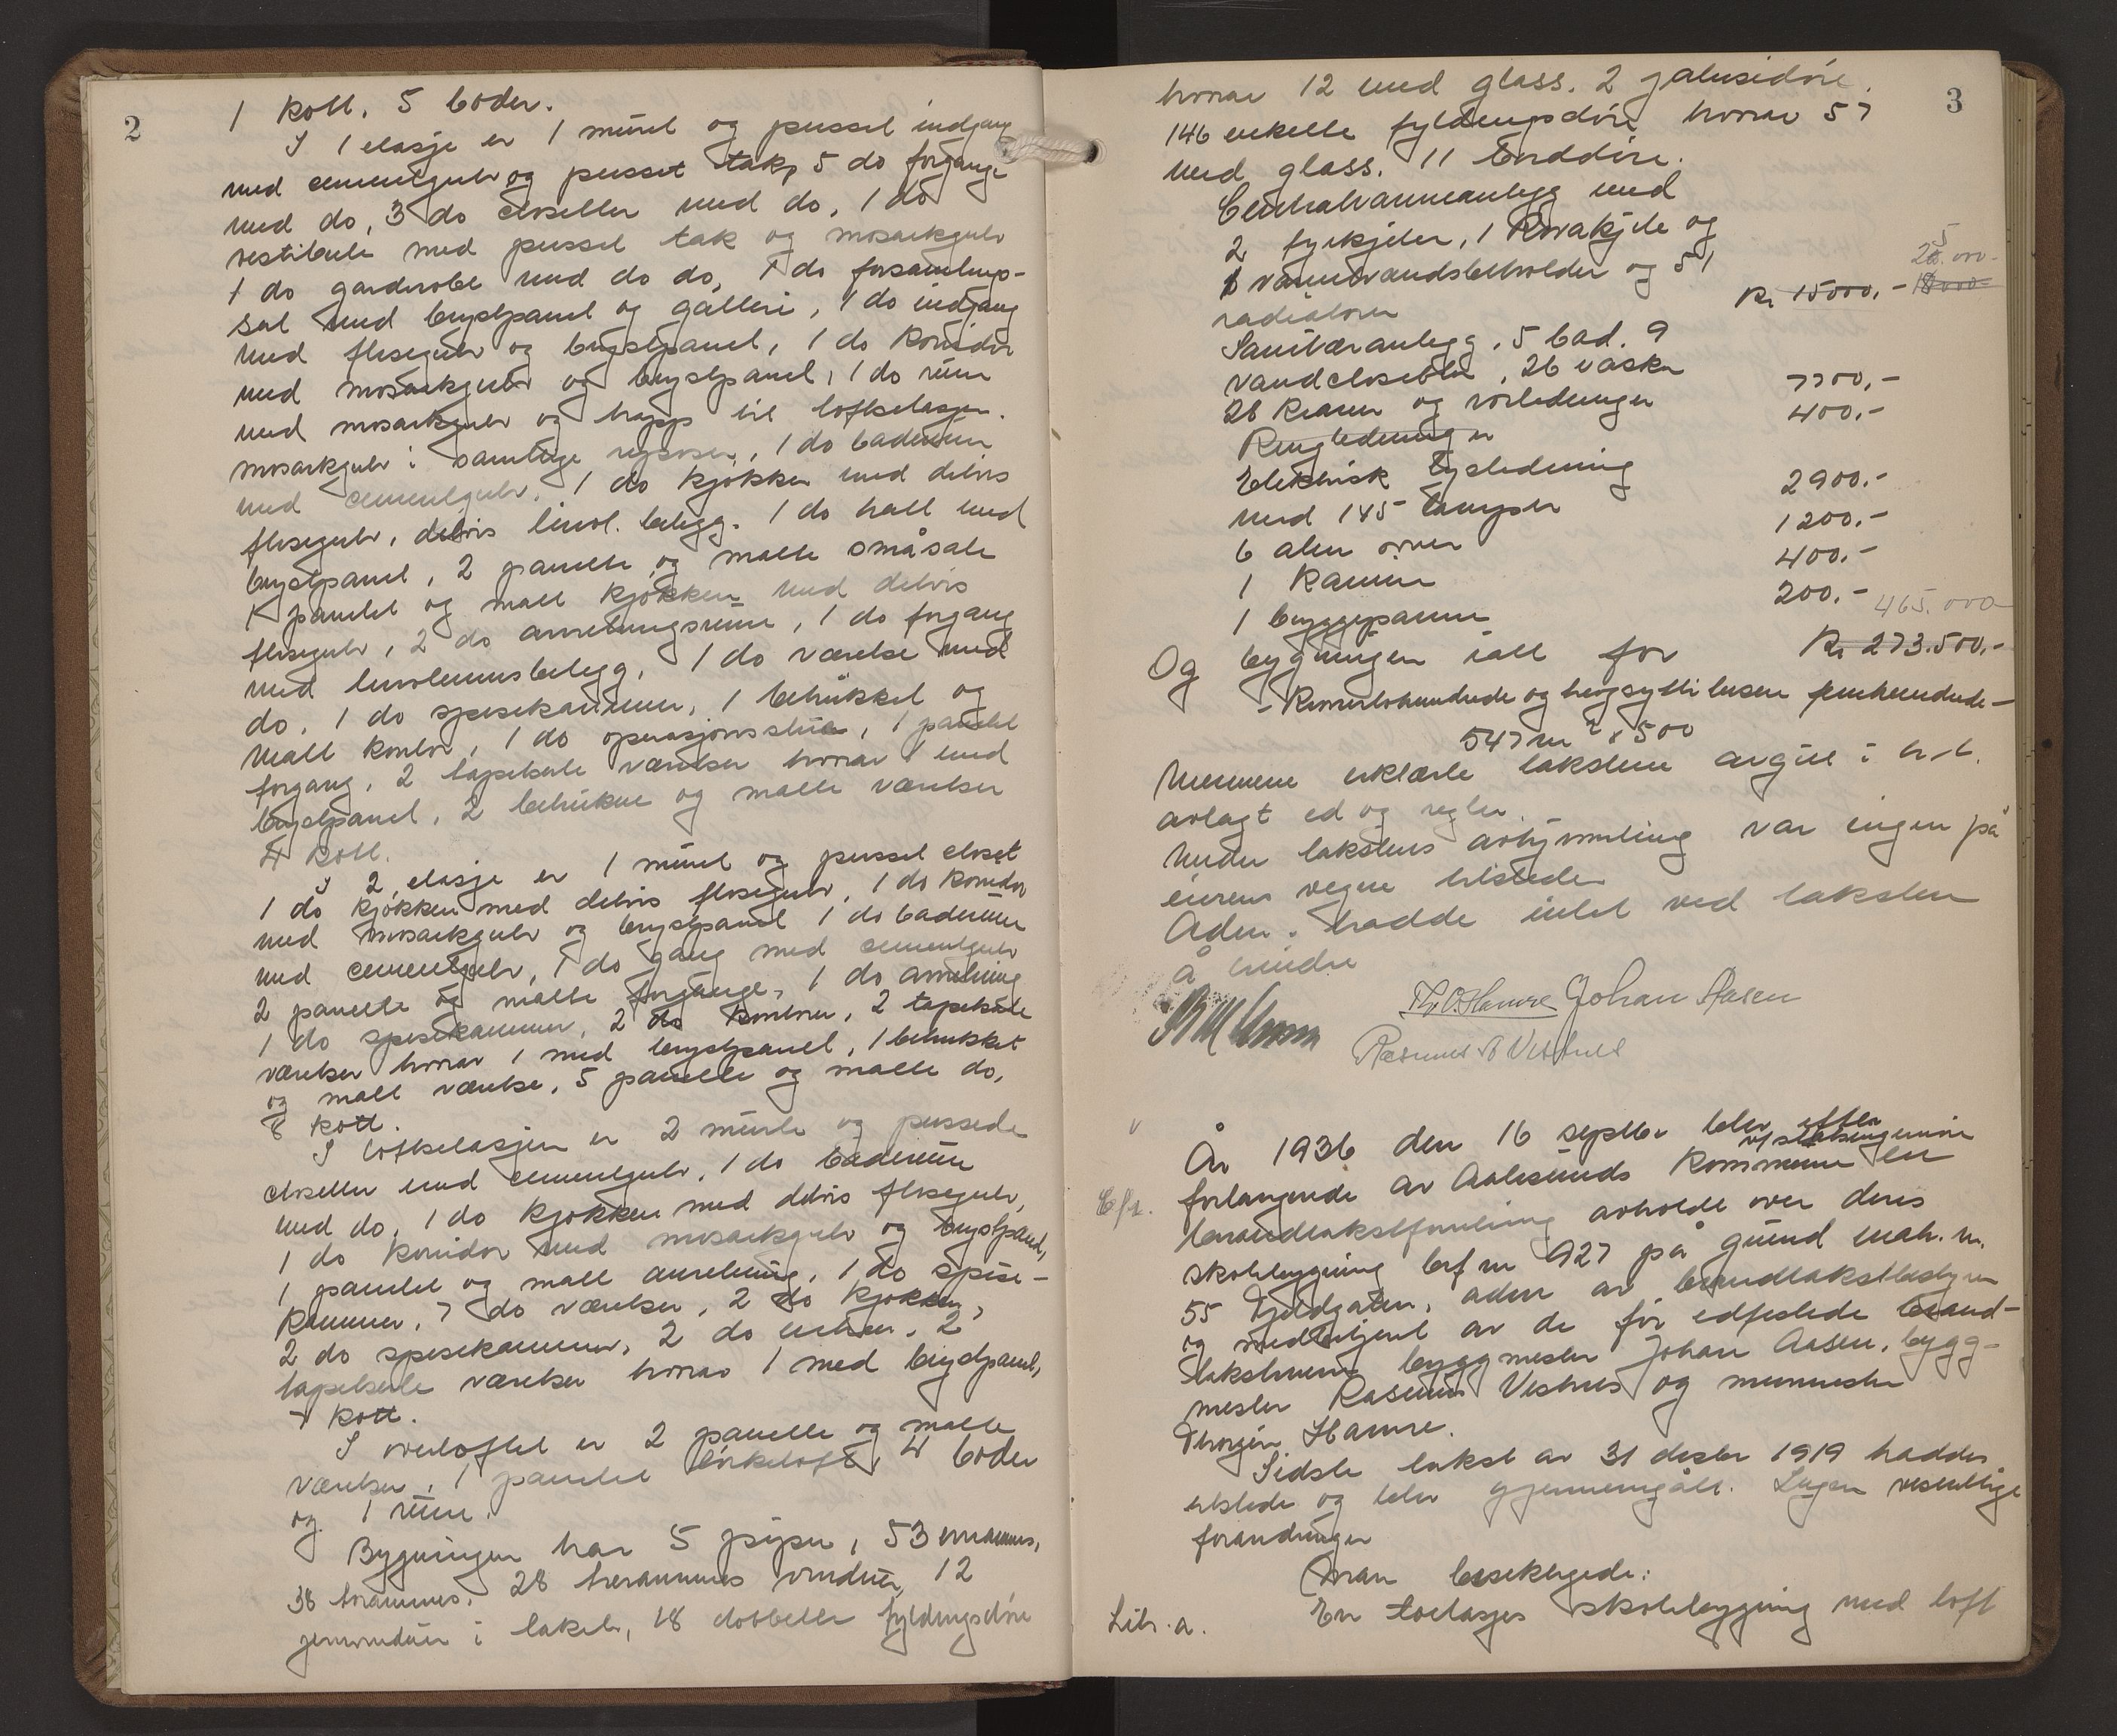 2
1 kott. 5 boder.
I 1 etasje er 1 muret og pusset indgang
med cementgulv og pusset tak, 5 do forgange
med do, 3 do closetter med do, 1 do
vestibule med pusset tak og mosaikgulv
1 do garderobe med do do, 1 do forsamlings-
sal med brystpanel og galleri, 1 do indgang
med flisegulv og brystpanel, 1 do koridor
med mosaikgulv og brystpanel, 1 do rum
med mosaikgulv og trapp til loftsetasjen.
mosaikgulv i samtlige reposer, 1 do baderum
med cementgulv. 1 do kjøkken med delvis
flisegulv, delvis linol. belegg. 1 do hall med
brystpanel, 2 panelte og malte småsale
1 panelet og malt kjøkken med delvis
flisegulv, 2 do anretningsrum, 1 do forgang
med linoleumsbelegg. 1 do værelse med
do. 1 do spisekammer, 1 betrukket og
malt kontor, 1 do operasjonsstue, 1 panelet
forgang. 2 tapetserte værelser hvorav 1 med
brystpanel, 2 betrukne og malte værelser
4 kott.
I 2 etasje er 1 muret og pusset closet
1 do kjøkken med delvis flisegulv, 1 do koridor
med mosaikgulv og brystpanel 1 do baderum
med cementgulv, 1 do gang med cementgulv
2 panelte og malte forgange, 1 do anretning
1 do spisekammer, 2 do kontorer, 2 tapetserte
værelser hvorav 1 med brystpanel, 1 betrukket
og malt værelse, 5 panelte og malte do,
8 kott.
I loftsetasjen er 2 murte og pussede
closetter med cementgulv, 1 do baderum
med do, 1 do kjøkken med delvis flisegulv,
1 do koridor med mosaikgulv og brystpanel,
1 panelet og malt anretning, 1 do spise-
kammer, 7 do værelser, 2 do kjøkken,
2 do spisekammer, 2 do 2
tapetserte værelser hvorav 1 med brystpanel,
7 kott.
I overloftet er 2 panelte og malte
værelser, 1 panelet tørkeloft, 4 boder
og 1 rum.
Bygningen har 5 piper, 53 enrammes,
38 torammes, 28 trerammes vinduer, 12
jernvinduer i taket, 18 dobbelte fyldingsdøre
3
hvorav 12 med glass. 2 jalusidøre.
146 enkelte fyldingsdøre hvorav 57
med glass. 11 borddøre.
Centralvarmeanlegg med
2 fyrkjeler, 1 kjele og
1 varmtvandsbeholder og 51
radiatorer Kr 15000,- 25.000- 18000-
Sanitæranlegg. 5 bad. 9
vandclosetter, 26 vasker
28 kraner og rørledninger 7700,-
Ringledninger 400,-
Elektrisk lysledning
med 145 lamper 2900.-
6 alen ovner 1200.-
1 kamin 400.-
1 bryggepanne 200.-
Og bygningen ialt for Kr 273.500,- 465.000
- Kroner tohundrede og treogsytti tusen femhundrede -
547 m² x 500
Mennene erklærte taksten avgiet i h.t.
avlagt ed og regler.
Under takstens avhjemling var ingen på
eierens vegne tilstede
Adm. hadde intet ved taksten
å hindre
Th. O. Hamre Johan Aasen
Rasmus B Vestnes
År 1936 den 16 septbr blev efter
forlangende av Aalesunds kommune v/ stadsingeniøren en
branntakstforretning avholdt over deres
skolebygning brf nr 927 på grund matr. nr.
55 Kjeldgaten, adm av brandtakstbestyrer
og medbetjent av de før edfestede brand-
takstmenn byggmester Johan Aasen, bygg-
mester Rasmus Vestnes og murmester
Thorgein Hamre.
Sidste takst av 31 desbr 1919 haddes
tilstede og blev gjennemgått. Ingen vesentlige
forandringer
Man besiktigede:
Litr. a. En toetasjes skolebygning med loft